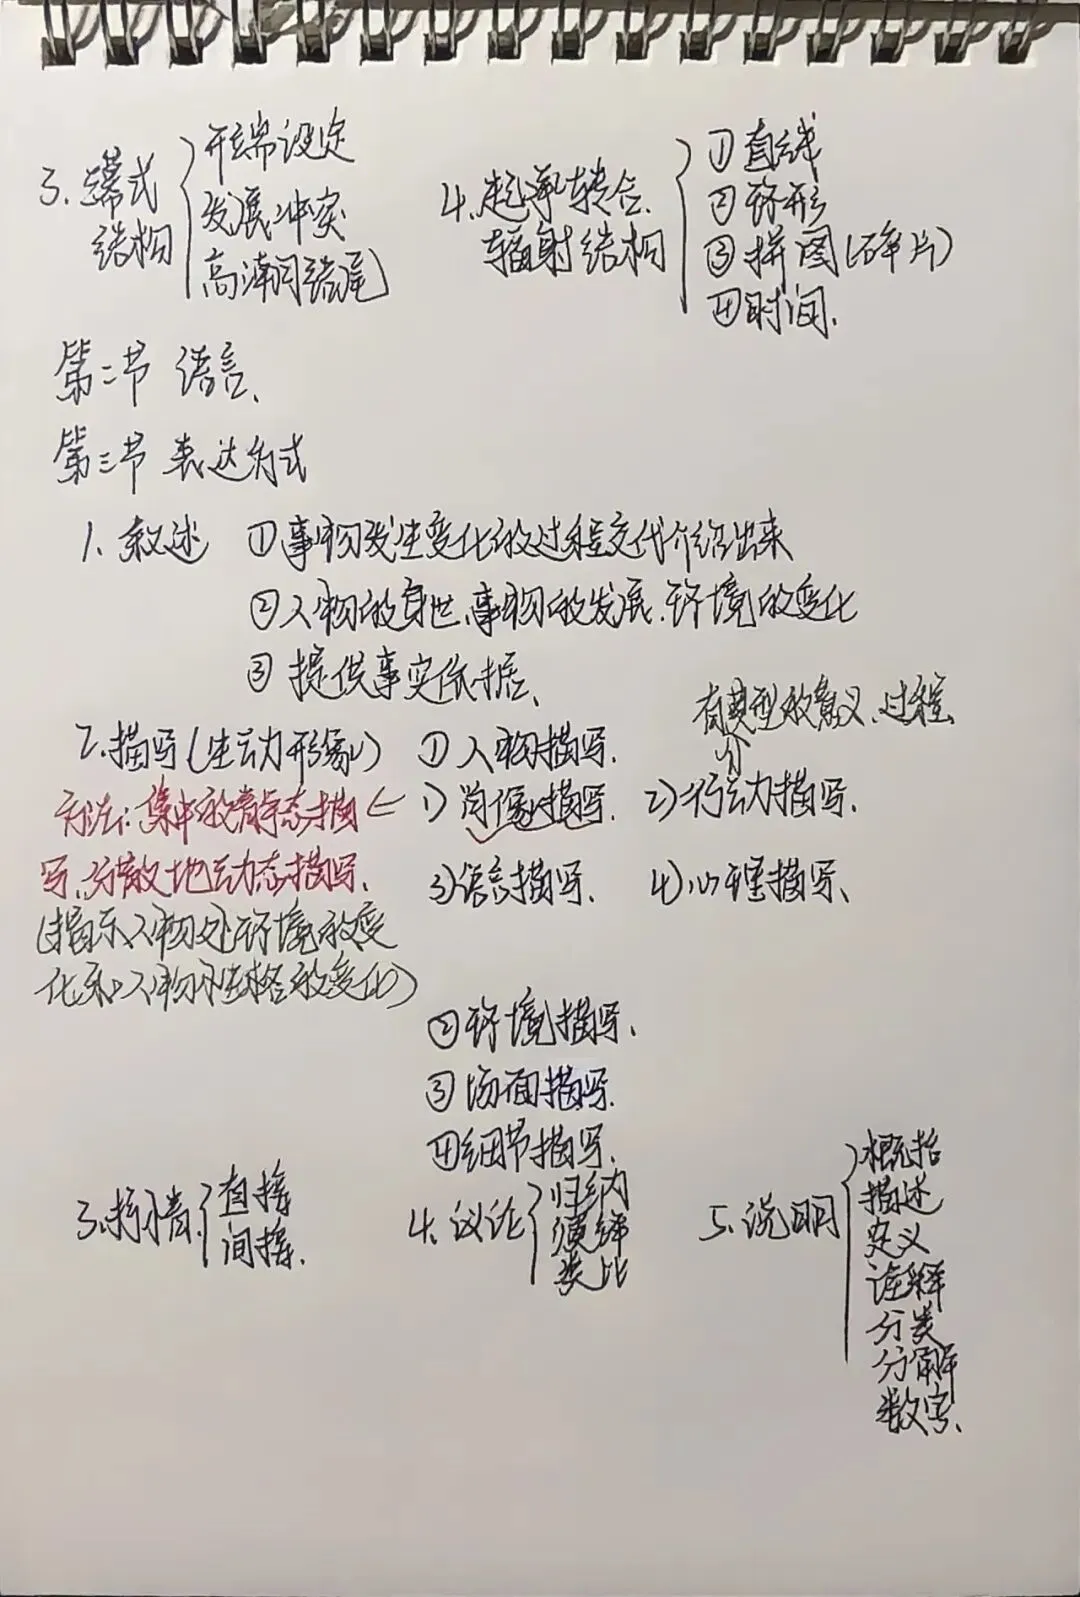 3. 幕式结构
开端设定
发展冲突
高潮问结尾
4. 起承转合.
辐射结构
①直线
②环形
③拼图(碎片)
④时间.
第二节 语言、
第三节 表达方式
1. 叙述 ①事物发生变化的过程交代介绍出来
②人物的身世、事物的发展.环境的变化
③ 提供事实依据、
有典型的意义、过程
2.描写(生动形象) ①人物描写.
方法:集中的静态描写、分散地动态描写、
1)肖像描写. 2)行动描写.
3)语言描写. 4)心理描写、
(揭示人物处环境的变
化和人物性格的变化)
②环境描写、
③场面描写.
④细节描写.
3.抒情
直接
间接.
4.议论
归纳
演绎
类比
5.说明
概括
描述
定义
诠释
分类
分解
数字、